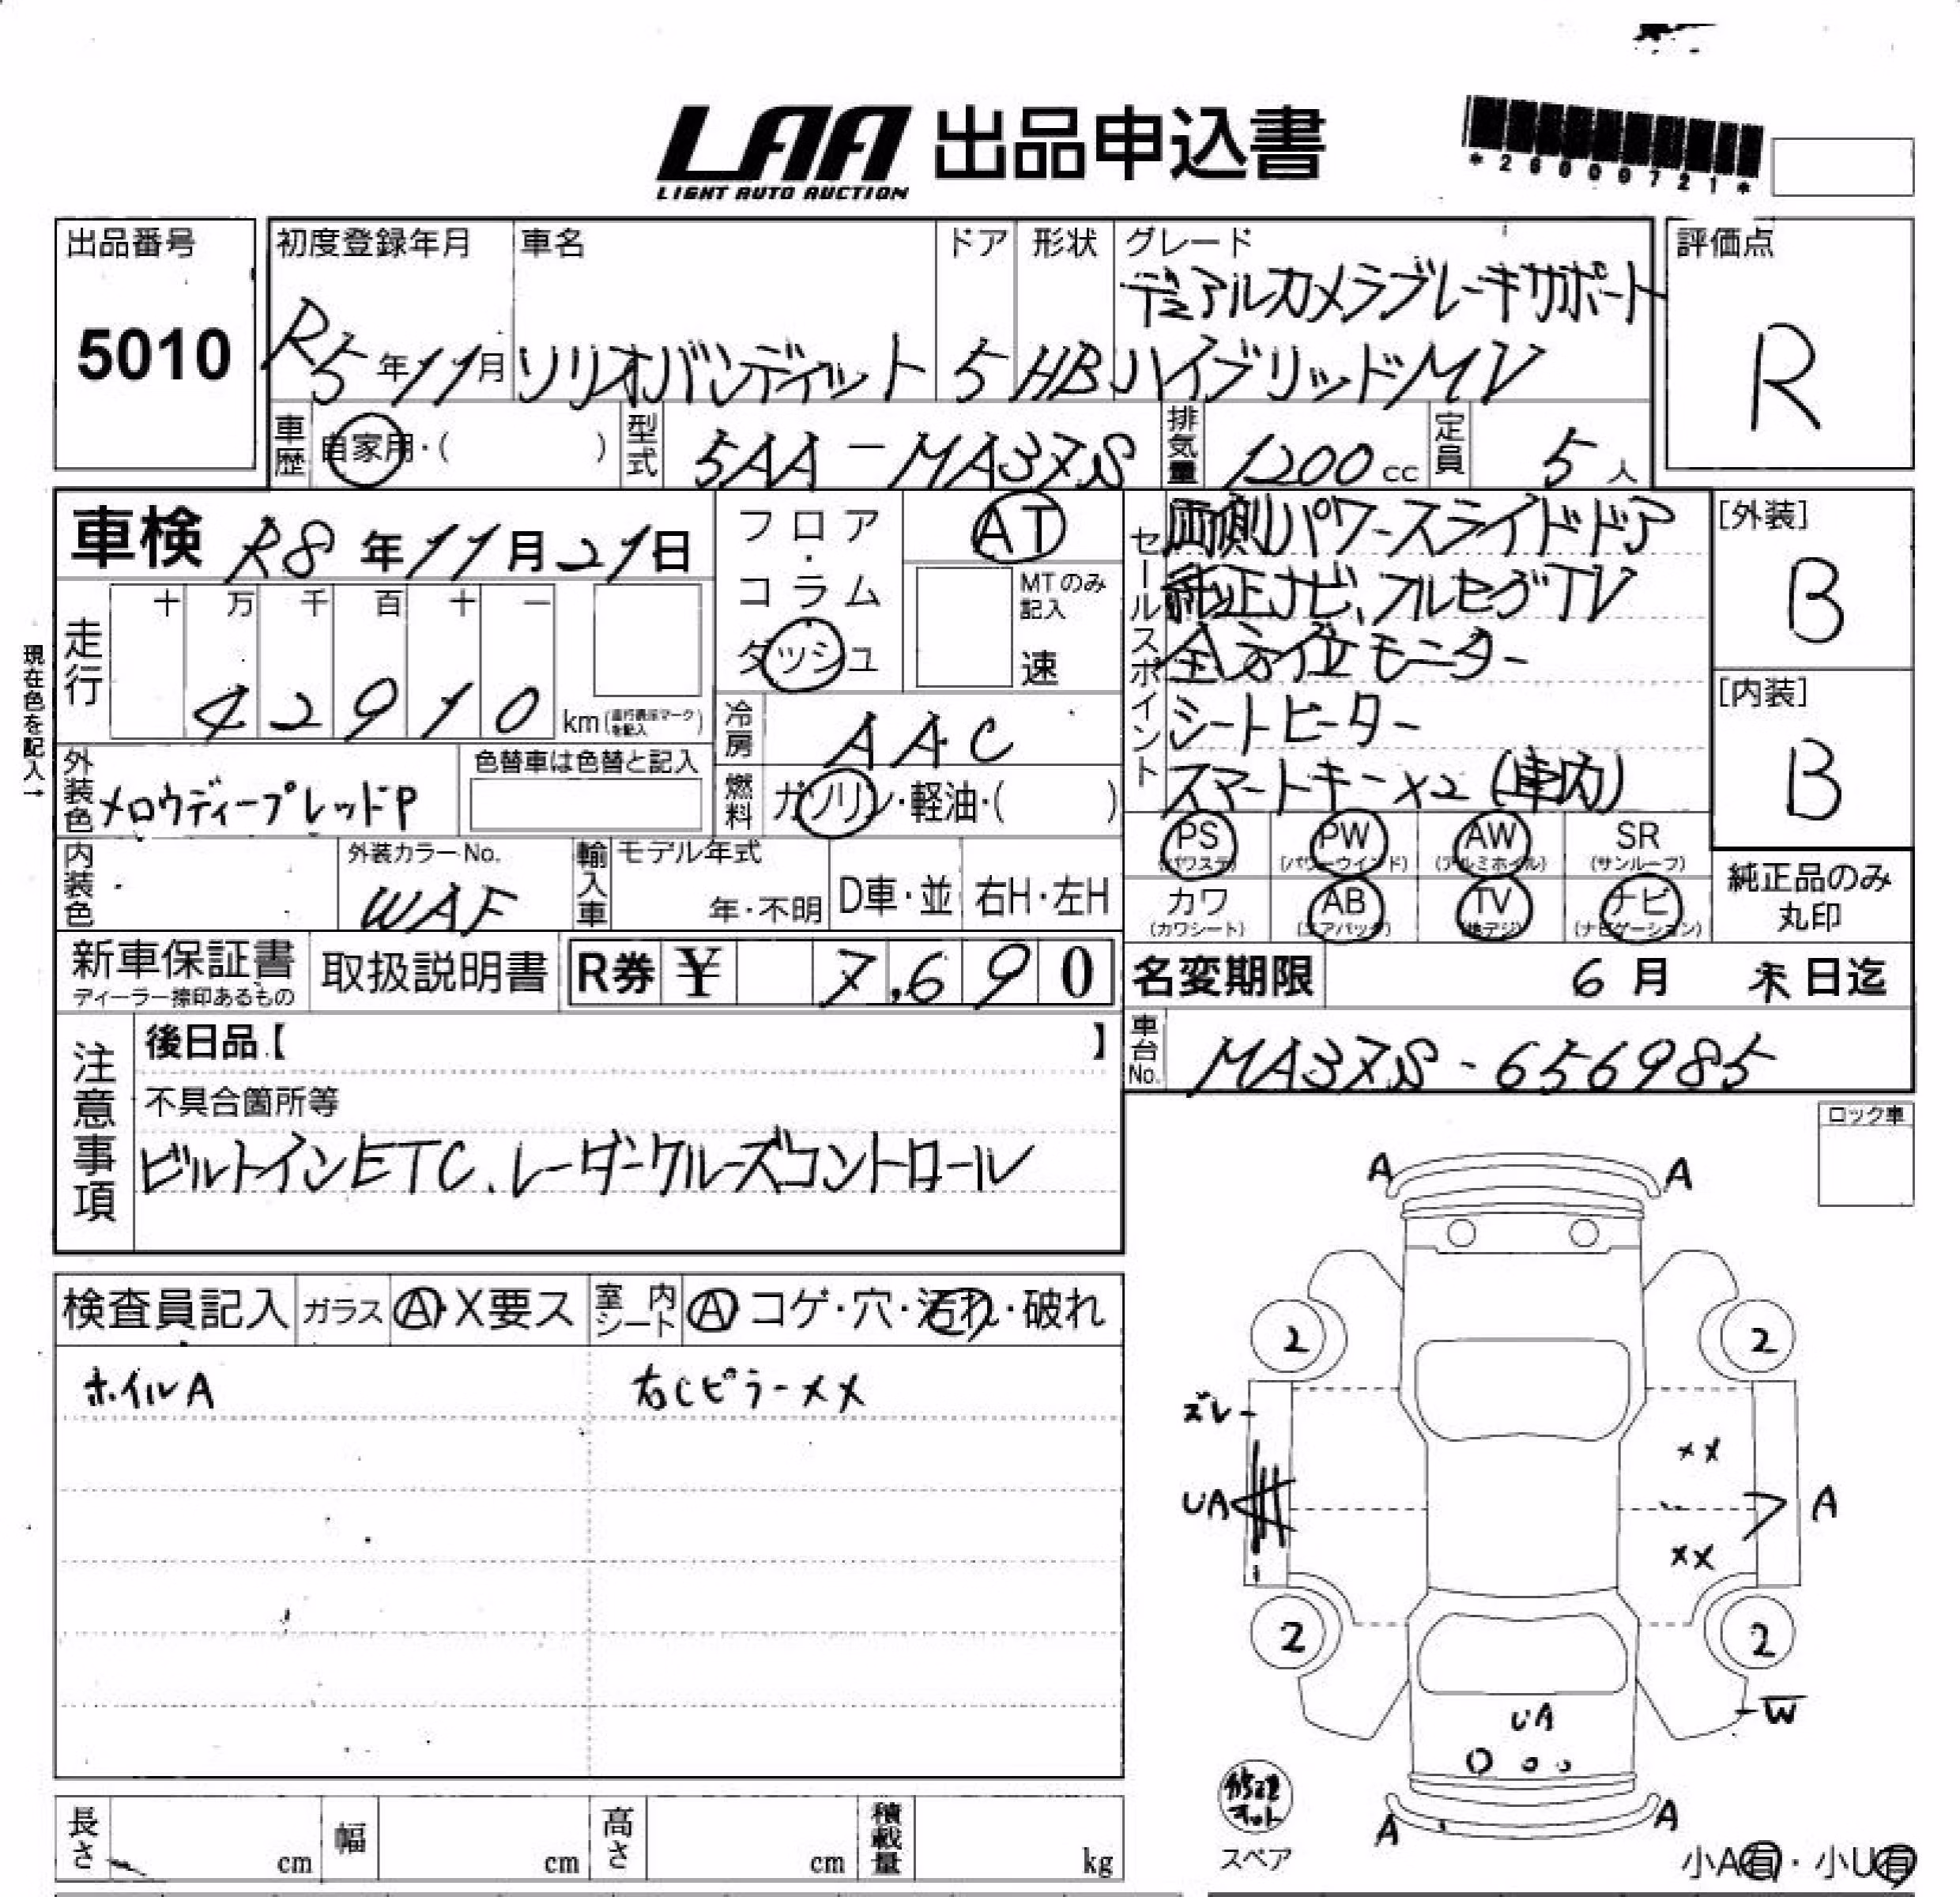 LAA 出品申込書
LIGHT AUTO AUCTION
*26000721*
出品番号
5010
初度登録年月
R5年11月
車名
ソリオバンディット
ドア
5
形状
HB
グレード
デュアルカメラブレーキサポート
ハイブリッドMV
評価点
R
車歴
自家用・( )
型式
5AA-MA37S
排気量
1200cc
定員
5人
車検 R8年11月21日
フロア・コラム
ダッシュ
AT
MTのみ記入
速
走行
十 万 千 百 十 一
4 2 9 1 0 km(走行表示マークを記入)
現在色を記入→
冷房
AAC
燃料
ガソリン・軽油・( )
外装色
メロウディープレッドP
色替車は色替と記入
内装色
外装カラーNo.
WAF
輸入車
モデル年式
年・不明
D車・並
右H・左H
セールスポイント
両側パワースライドドア
純正ナビ、フルセグTV
全方位モニター
シートヒーター
スマートキー×2(車内)
[外装]
B
[内装]
B
PS(パワステ)
PW(パワーウインド)
AW(アルミホイル)
SR(サンルーフ)
カワ(カワシート)
AB(エアバッグ)
TV(地デジ)
ナビ(ナビゲーション)
純正品のみ丸印
新車保証書
ディーラー捺印あるもの
取扱説明書
R券 ¥ 7,690
名変期限 6月 末日迄
車台No.
MA37S-656985
注意事項
後日品【 】
不具合箇所等
ビルトインETC、レーダークルーズコントロール
ロック車
検査員記入
ガラス
A・X要ス
室内シート
A コゲ・穴・汚れ・破れ
ホイルA
右Cピラーxx
A A
2 2
ズレ
xx
UA A
xx
2 2
W
UA
A A
修理キット
スペア
小A有・小U有
長さ cm
幅 cm
高さ cm
積載量 kg